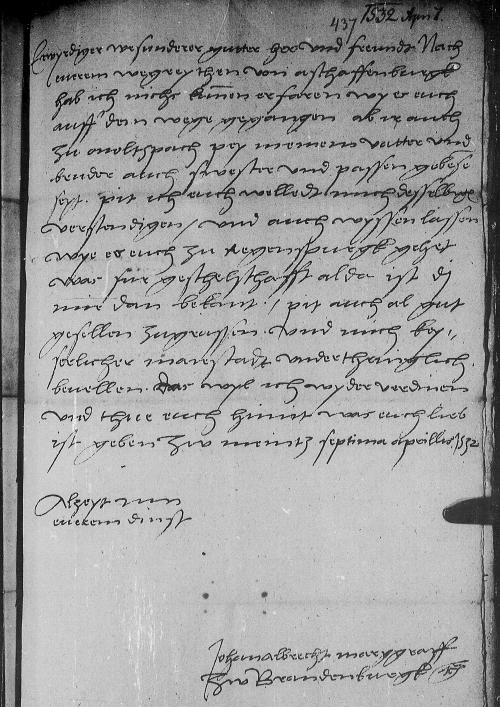 437 1532 April 7.
Erwyrdiger wesunderer gutter her und freundt Nach
eurem wegreythen von aschaffenburgk
hab ich nichs kunen erfaren wy es euch
auff dem wege gegangen ab ir auch
zu onoltzpach pey meinem vatter und
bruder auch swester und passen gebese
seyt. pit ich euch welledt mich desselbige
verstendigen / und auch wyssen lassen
wye es euch zu regenspurgk gehet
was fur geschelschafft alda ist dj
mir dan bekant / pit auch al gut
gesellen zugrussen. und mich key,,
serlicher maiestadt underthenglich
bevellen. Das wyl ich wyder verdinen
und thue euch himit was euch lieb
ist geben zw meintz septima aprillis 1532
Alzeyt nun
eurem dinst
Johan albrecht marggraff
zw Brandenburgk